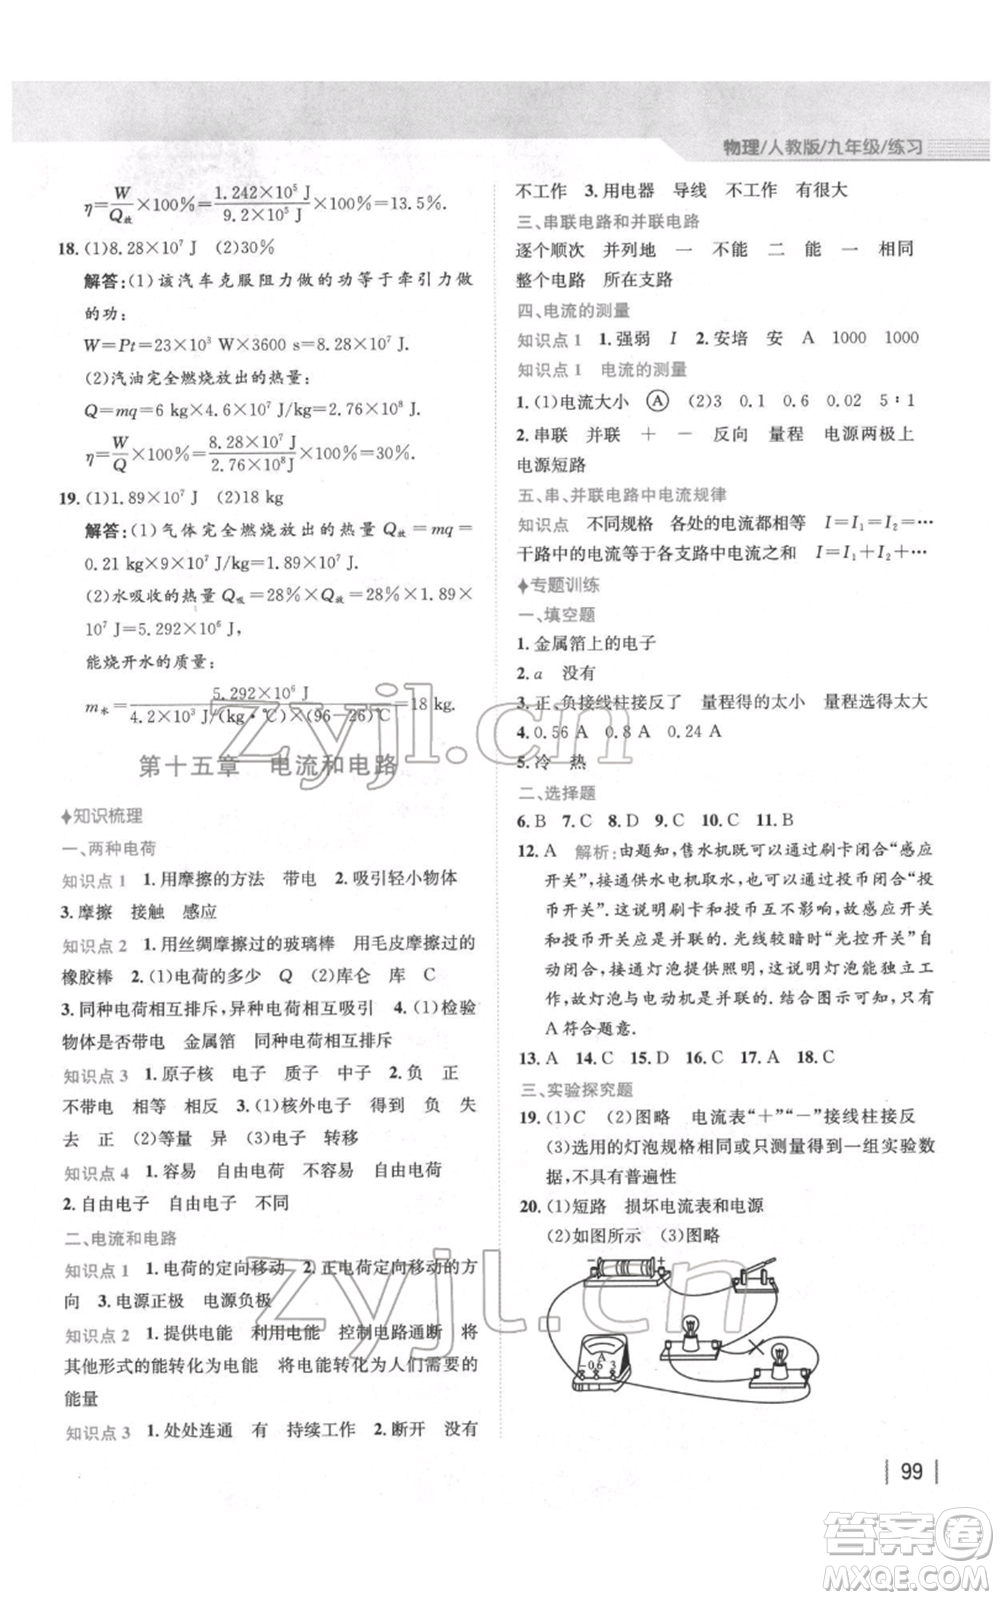 物理/人教版/九年级/练习
η=W/Q放×100%=1.242×10⁵ J/9.2×10⁵ J×100%=13.5%.
18. (1)8.28×10⁷ J (2)30%
解答:(1)该汽车克服阻力做的功等于牵引力做
的功:
W=Pt=23×10³ W×3600 s=8.28×10⁷ J.
(2)汽油完全燃烧放出的热量:
Q=mq=6 kg×4.6×10⁷ J/kg=2.76×10⁸ J.
η=W/Q×100%=8.28×10⁷ J/2.76×10⁸ J×100%=30%.
19. (1)1.89×10⁷ J (2)18 kg
解答:(1)气体完全燃烧放出的热量 Q放=mq=
0.21 kg×9×10⁷ J/kg=1.89×10⁷ J.
(2)水吸收的热量 Q吸=28%×Q放=28%×1.89×
10⁷ J=5.292×10⁶ J,
能烧开水的质量:
m水=5.292×10⁶ J/4.2×10³ J/(kg·℃)×(96-26)℃=18 kg.
第十五章 电流和电路
知识梳理
一、两种电荷
知识点 1 1.用摩擦的方法 带电 2.吸引轻小物体
3.摩擦 接触 感应
知识点 2 1.用丝绸摩擦过的玻璃棒 用毛皮摩擦过的
橡胶棒 2.(1)电荷的多少 Q (2)库仑 库 C
3.同种电荷相互排斥,异种电荷相互吸引 4.(1)检验
物体是否带电 金属箔 同种电荷相互排斥
知识点 3 1.原子核 电子 质子 中子 2.负 正
不带电 相等 相反 3.(1)核外电子 得到 负 失
去 正 (2)等量 异 (3)电子 转移
知识点 4 1.容易 自由电荷 不容易 自由电荷
2.自由电子 自由电子 不同
二、电流和电路
知识点 1 1.电荷的定向移动 2.正电荷定向移动的方
向 3.电源正极 电源负极
知识点 2 1.提供电能 利用电能 控制电路通断 将
其他形式的能转化为电能 将电能转化为人们需要的
能量
知识点 3 1.处处连通 有 持续工作 2.断开 没有
不工作 3.用电器 导线 不工作 有很大
三、串联电路和并联电路
逐个顺次 并列地 一 不能 二 能 一 相同
整个电路 所在支路
四、电流的测量
知识点 1 1.强弱 I 2.安培 安 A 1000 1000
知识点 1 电流的测量
1.(1)电流大小 Ⓐ (2)3 0.1 0.6 0.02 5∶1
2.串联 并联 + - 反向 量程 电源两极上
电源短路
五、串、并联电路中电流规律
知识点 不同规格 各处的电流都相等 I=I₁=I₂=…
干路中的电流等于各支路中电流之和 I=I₁+I₂+…
专题训练
一、填空题
1.金属箔上的电子
2.a 没有
3.正、负接线柱接反了 量程得的太小 量程选得太大
4.0.56 A 0.8 A 0.24 A
5.冷 热
二、选择题
6.B 7.C 8.D 9.C 10.C 11.B
12.A 解析:由题可知,售水机既可以通过刷卡闭合“感应
开关”,接通供水电机取水,也可以通过投币闭合“投
币开关”.这说明刷卡和投币互不影响,故感应开关
和投币开关应是并联的.光线较暗时“光控开关”自
动闭合,接通灯泡提供照明,这说明灯泡能独立工
作,故灯泡与电动机是并联的.结合选项可知,只有
A符合题意.
13.A 14.C 15.D 16.C 17.A 18.C
三、实验探究题
19.(1)C (2)图略 电流表“+”“-”接线柱接反
(3)选用的灯泡规格相同或只测量得到一组实验数
据,不具有普遍性
20.(1)短路 损坏电流表和电源
(2)如图所示 (3)图略
+
A
-0.6 3
99
zyjl.cn
zyjl.cn
答案卷
MXQE.COM